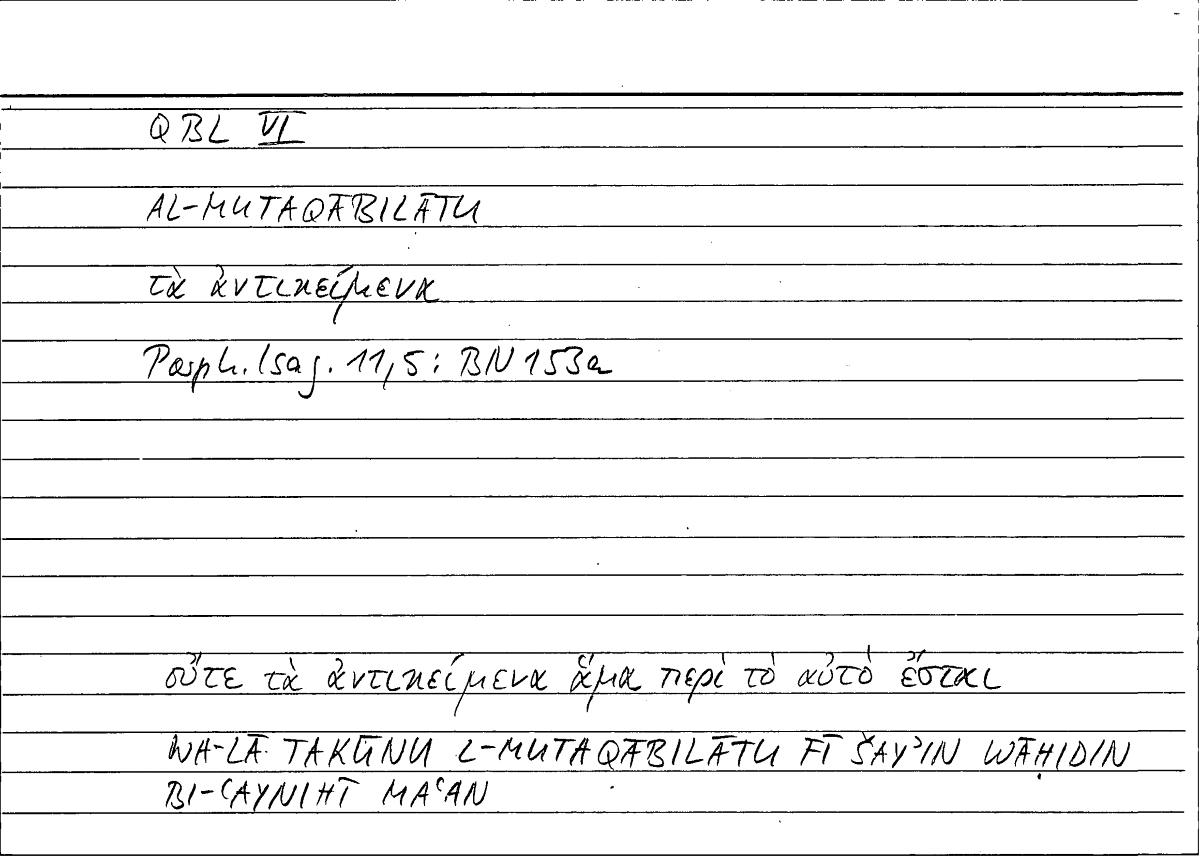 QBL VI
AL-MUTAQĀBILĀTU
τὰ ἀντικείμενα
Porph. Isag. 11,5: BN 153a
οὔτε τὰ ἀντικείμενα ἅμα περὶ τὸ αὐτὸ ἔσται
WA-LĀ TAKŪNU L-MUTAQĀBILĀTU FĪ ŠAYʾIN WĀḤIDIN
BI-ʿAYNIHĪ MAʿAN